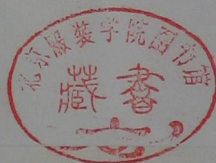 北京服装学院图书馆
藏書